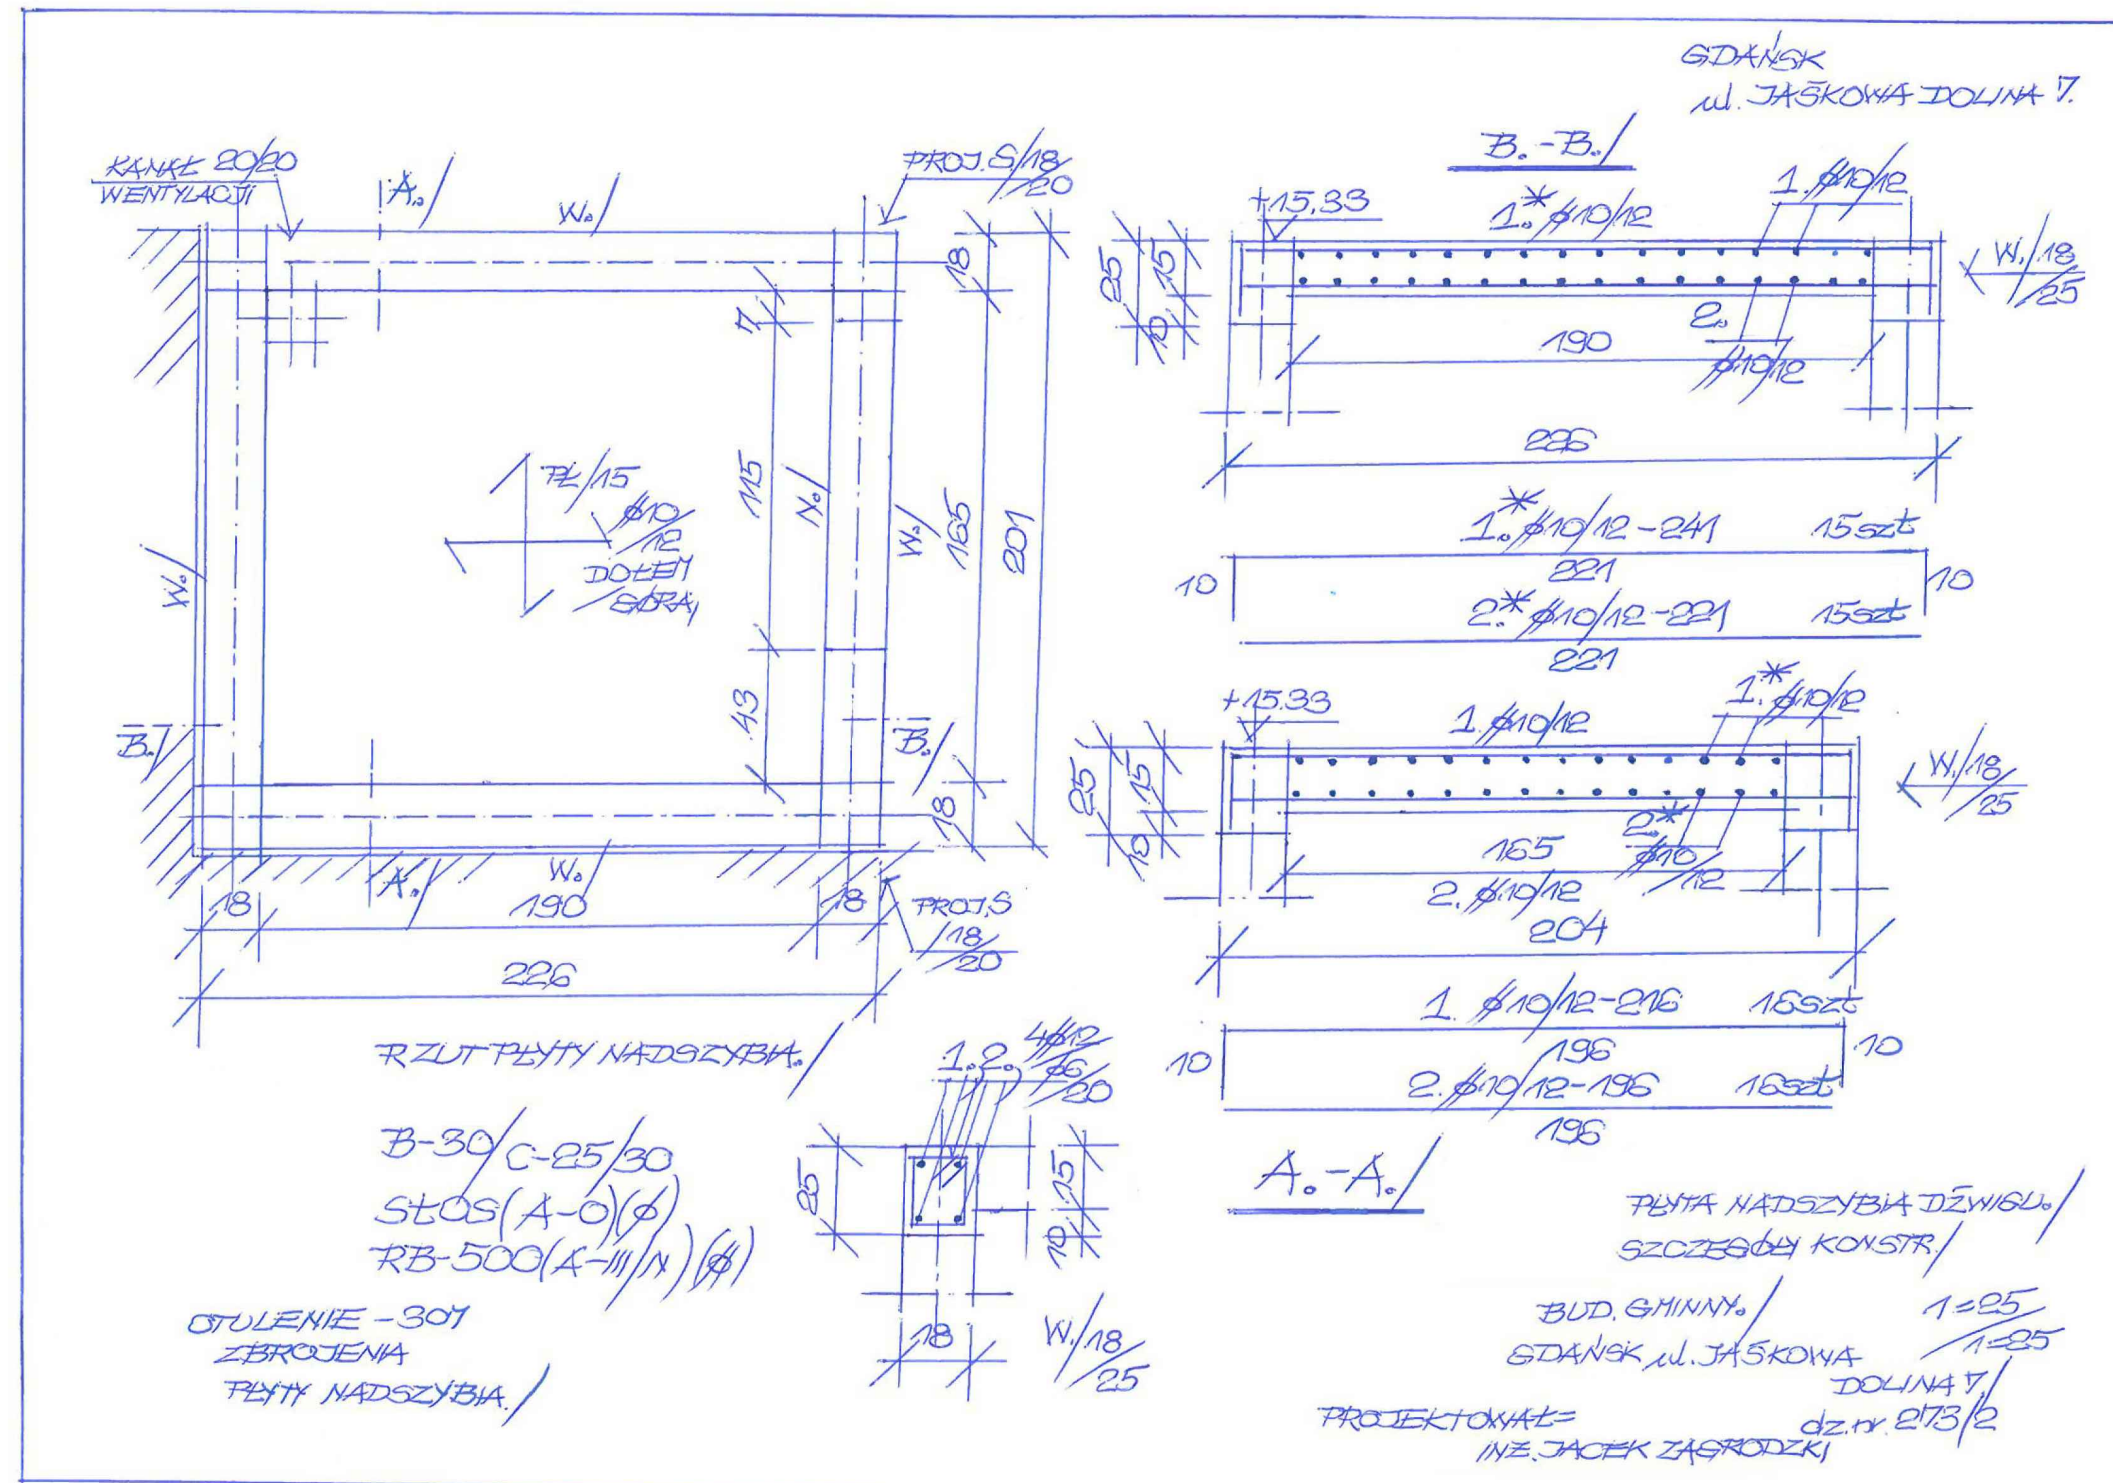 GDAŃSK
ul. JAŚKOWA DOLINA 7.
KANAŁ 20/20
WENTYLACJI
A./
W./
PROJ.S/18/20
18
7
115
N./
W./
165
201
PŁ/15
#10/12
DOŁEM
/GÓRĄ,
W./
43
B./
B./
18
A./
W./
18
190
18
PROJ.S
/18/20
226
RZUT PŁYTY NADSZYBIA./
B-30/C-25/30
StOS(A-0)(ϕ)
RB-500(A-III/N)(#)
OTULENIE -30
ZBROJENIA
PŁYTY NADSZYBIA./
1.2. 4#12
ϕ6/20
25
15
10
18
W./18/25
B.-B./
+15.33
1.* #10/12
1. #10/12
25
15
10
W./18/25
2.
#10/12
190
226
1.* #10/12-241 15szt
221
10
10
2.* #10/12-221 15szt
221
+15.33
1. #10/12
1.* #10/12
25
15
10
W./18/25
165
2.*
#10/12
2. #10/12
204
1. #10/12-216 16szt
196
10
10
2. #10/12-196 16szt
196
A.-A./
PŁYTA NADSZYBIA DŹWIGU./
SZCZEGÓŁY KONSTR./
BUD. GMINNY./
1=25
/1=25
GDAŃSK ul. JAŚKOWA
DOLINA 7/
dz.nr. 273/2
PROJEKTOWAŁ=
INŻ. JACEK ZAGRODZKI